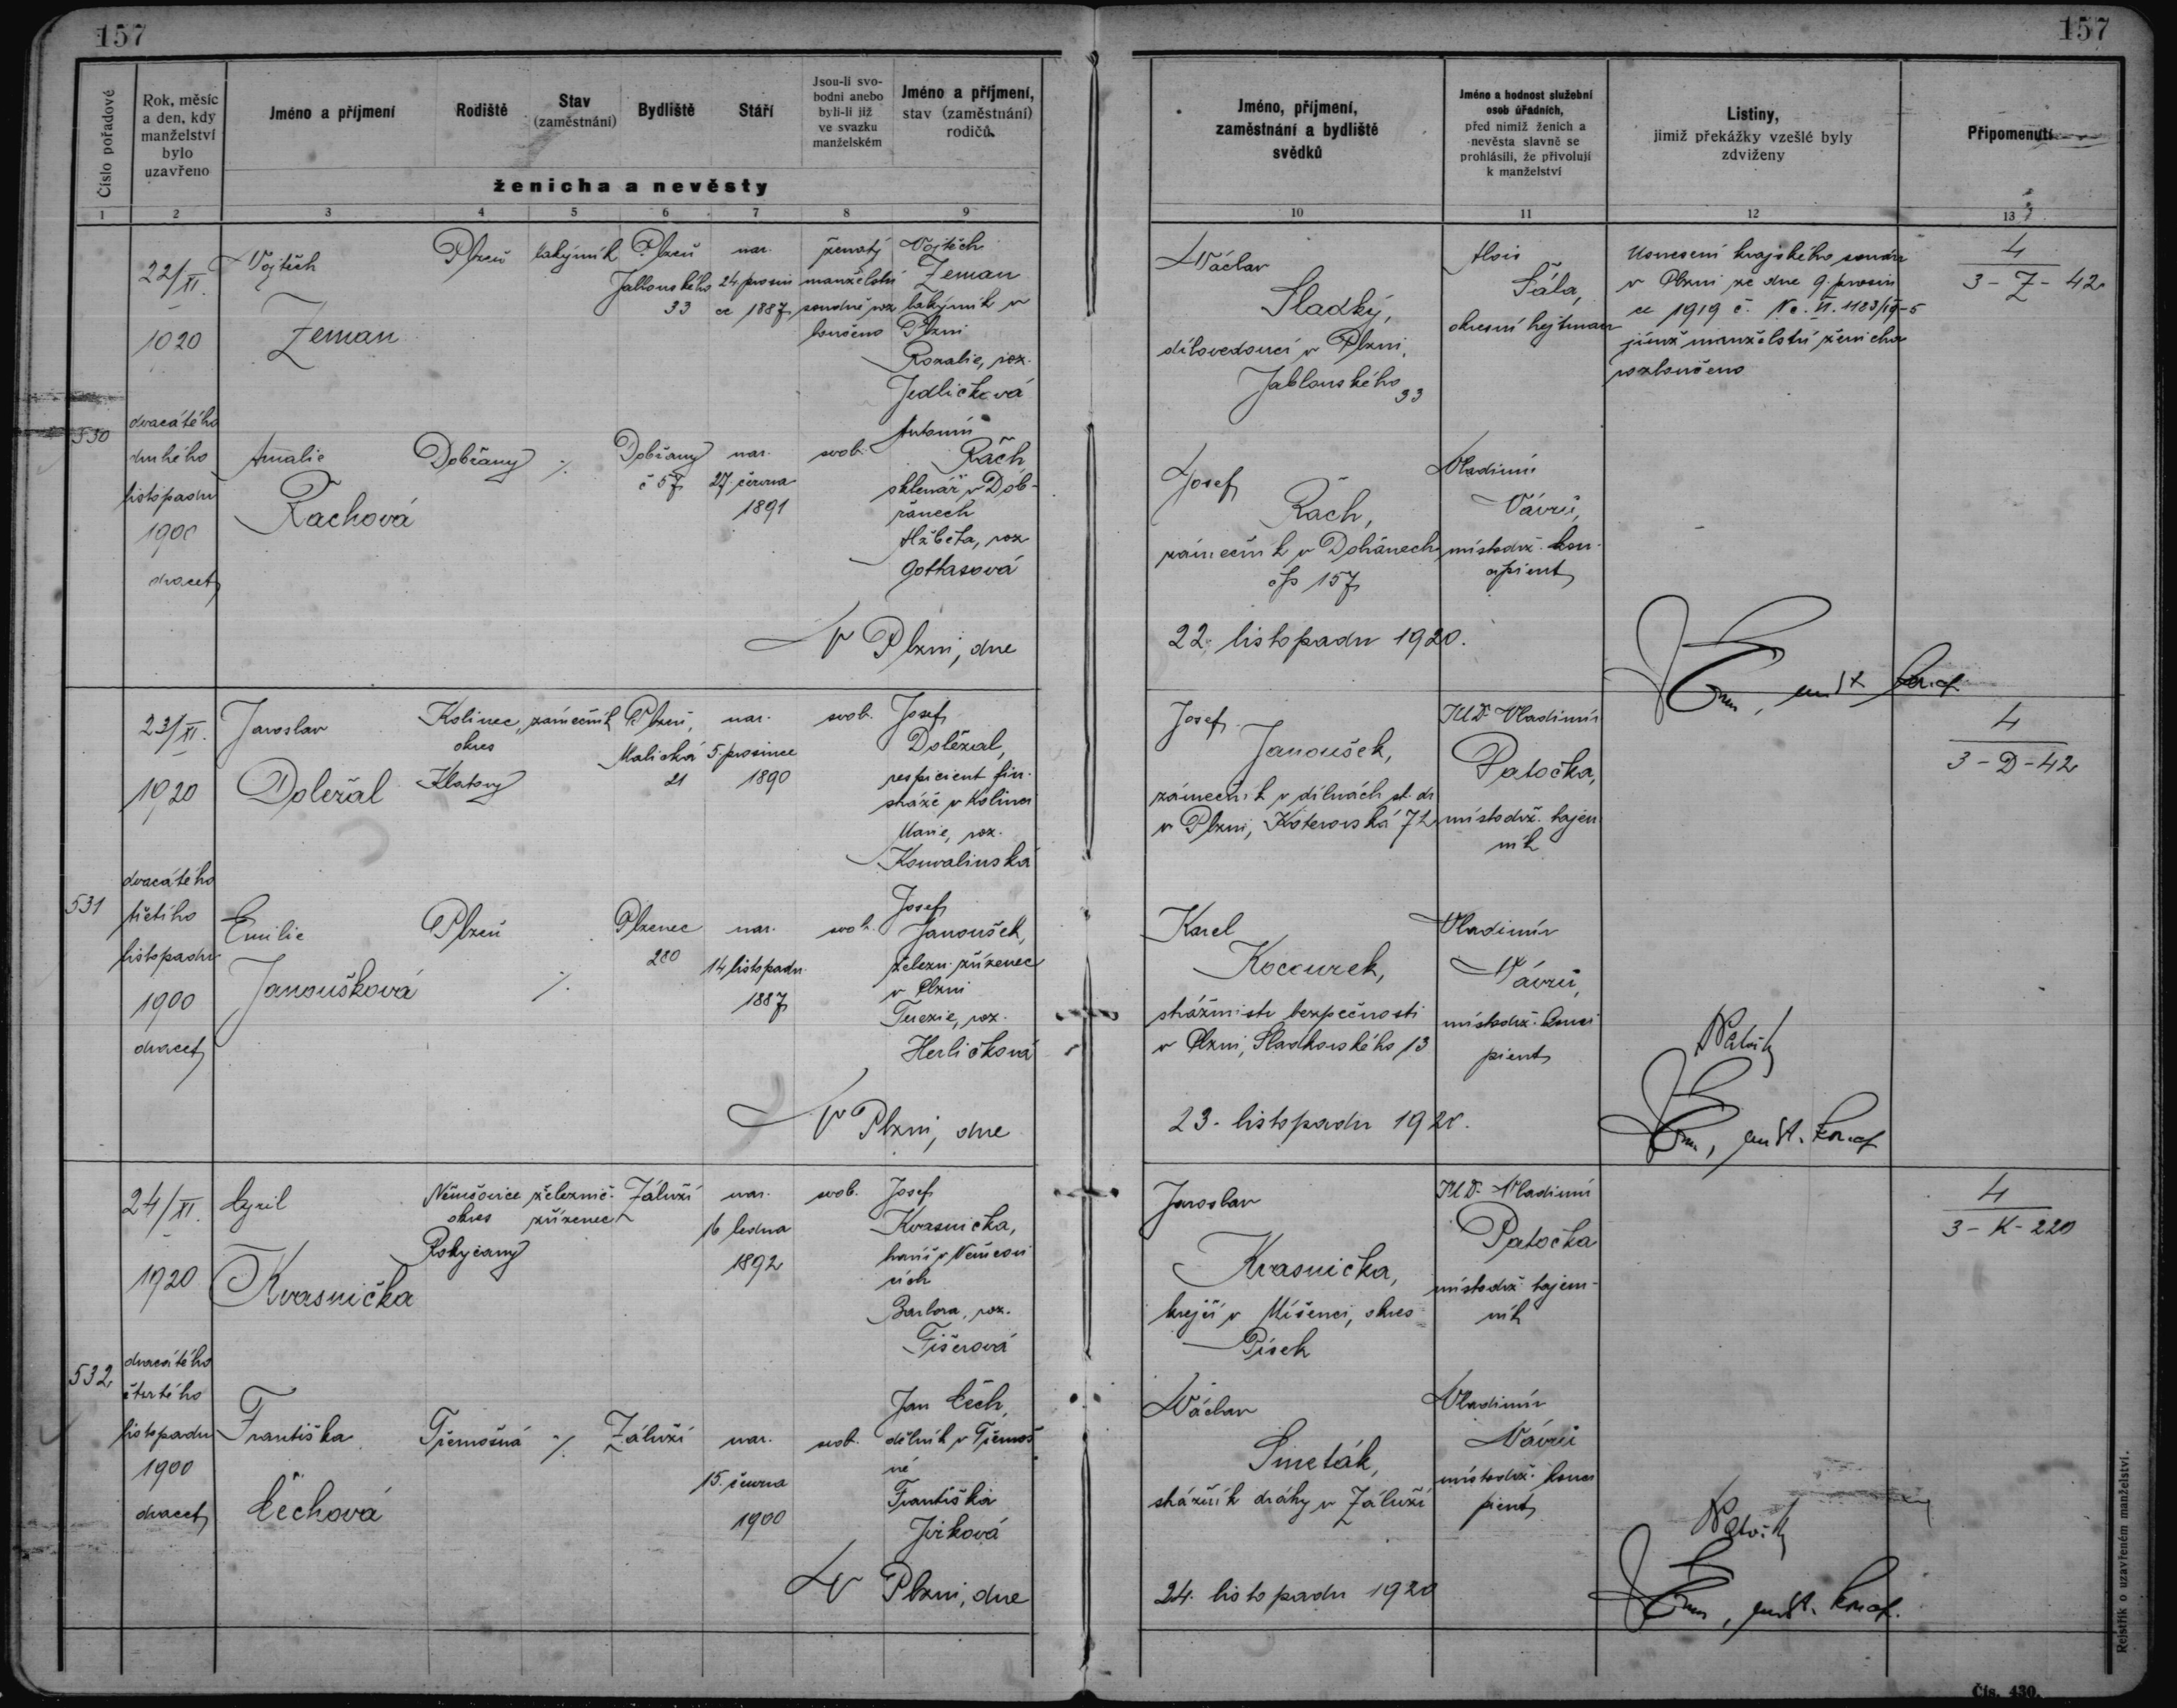 157
157
Číslo pořadové
Rok, měsíc
a den, kdy
manželství
bylo
uzavřeno
Jméno a příjmení
Rodiště
Stav
(zaměstnání)
Bydliště
Stáří
Jsou-li svo-
bodni anebo
byli-li již
ve svazku
manželském
Jméno a příjmení,
stav (zaměstnání)
rodičů.
ženicha a nevěsty
Jméno, příjmení,
zaměstnání a bydliště
svědků
Jméno a hodnost služební
osob úřadních,
před nimiž ženich a
nevěsta slavně se
prohlásili, že přivolují
k manželství
Listiny,
jimiž překážky vzešlé byly
zdviženy
Připomenutí
1 2 3 4 5 6 7 8 9 10 11 12 13
530
22/XI.
1920
dvacátého
druhého
listopadu
1900
dvacet
Vojtěch
Zeman
Plzeň
lakýrník
Plzeň
Jablonského
33
nar.
24 prosin
ce 1887
ženatý
manželství
soudně roz
loučeno
Vojtěch
Zeman
lakýrník v
Plzni
Rozalie, roz.
Jedličková
Amalie
Rachová
Dobřany
./.
Dobřany
č 57
nar.
27. června
1891
svob.
Antonín
Rach
sklenář v Dob-
řanech
Alžběta, roz
Gottasová
V Plzni, dne
Václav
Sladký,
dílovedoucí v Plzni,
Jablonského 33
Josef
Rach,
zámečník v
čp 157
22. listopadu 1920.
Alois
Šála,
okresní hejtman
Vladimír
Vávrů,
místodrž. kon-
cipient
Usnesení krajského soudu
v Plzni ze dne 9. prosin
ce 1919 č. Nc. VI. 1183/19-5
jímž manželství ženicha
rozloučeno
4
3 - Z - 42
531
23/XI.
1920
dvacátého
třetího
listopadu
1900
dvacet
Jaroslav
Doležal
Kolinec,
okres
Klatovy
zámečník
Plzeň,
Malická
21
nar.
5. prosince
1890
svob.
Josef
Doležal,
respicient fin.
stráže v Kolinci
Marie, roz.
Konvalinská
Emilie
Janoušková
Plzeň
./.
Plzenec
280
nar.
14 listopadu
1887
svob.
Josef
Janoušek,
železn. zřízenec
v Plzni
Terezie, roz.
Herličková
V Plzni, dne
Josef
Janoušek,
zámečník v dílnách st. dr.
v Plzni, Koterovská 72
Karel
Kocourek,
strážmistr bezpečnosti
v Plzni, Sladkovského 13
23. listopadu 1920.
JUDr Vladimír
Patočka,
místodrž. tajem
ník
Vladimír
Vávrů,
místodrž. konci
pient
4
3 - D - 42
532
24/XI.
1920
dvacátého
čtvrtého
listopadu
1900
dvacet
Cyril
Kvasnička
okres
Rokycany
železnič.
zřízenec
Záluží
nar.
16 ledna
1892
svob.
Josef
Kvasnička,
Barbora, roz.
Fišerová
Františka
Čechová
Třemošná
./.
Záluží
nar.
15. června
1900
svob.
Jan Čech,
dělník v Třemoš
né
Františka
Jirková
V Plzni, dne
Jaroslav
Kvasnička,
krejčí v Míšenci, okres
Písek
Václav
Smeták,
strážník dráhy v Záluží
24. listopadu 1920
JUDr Vladimír
Patočka
místodrž. tajem-
ník
Vladimír
Vávrů
místodrž. konci
pient
4
3 - K - 220
Rejstřík o uzavřeném manželství.
Čís. 430.